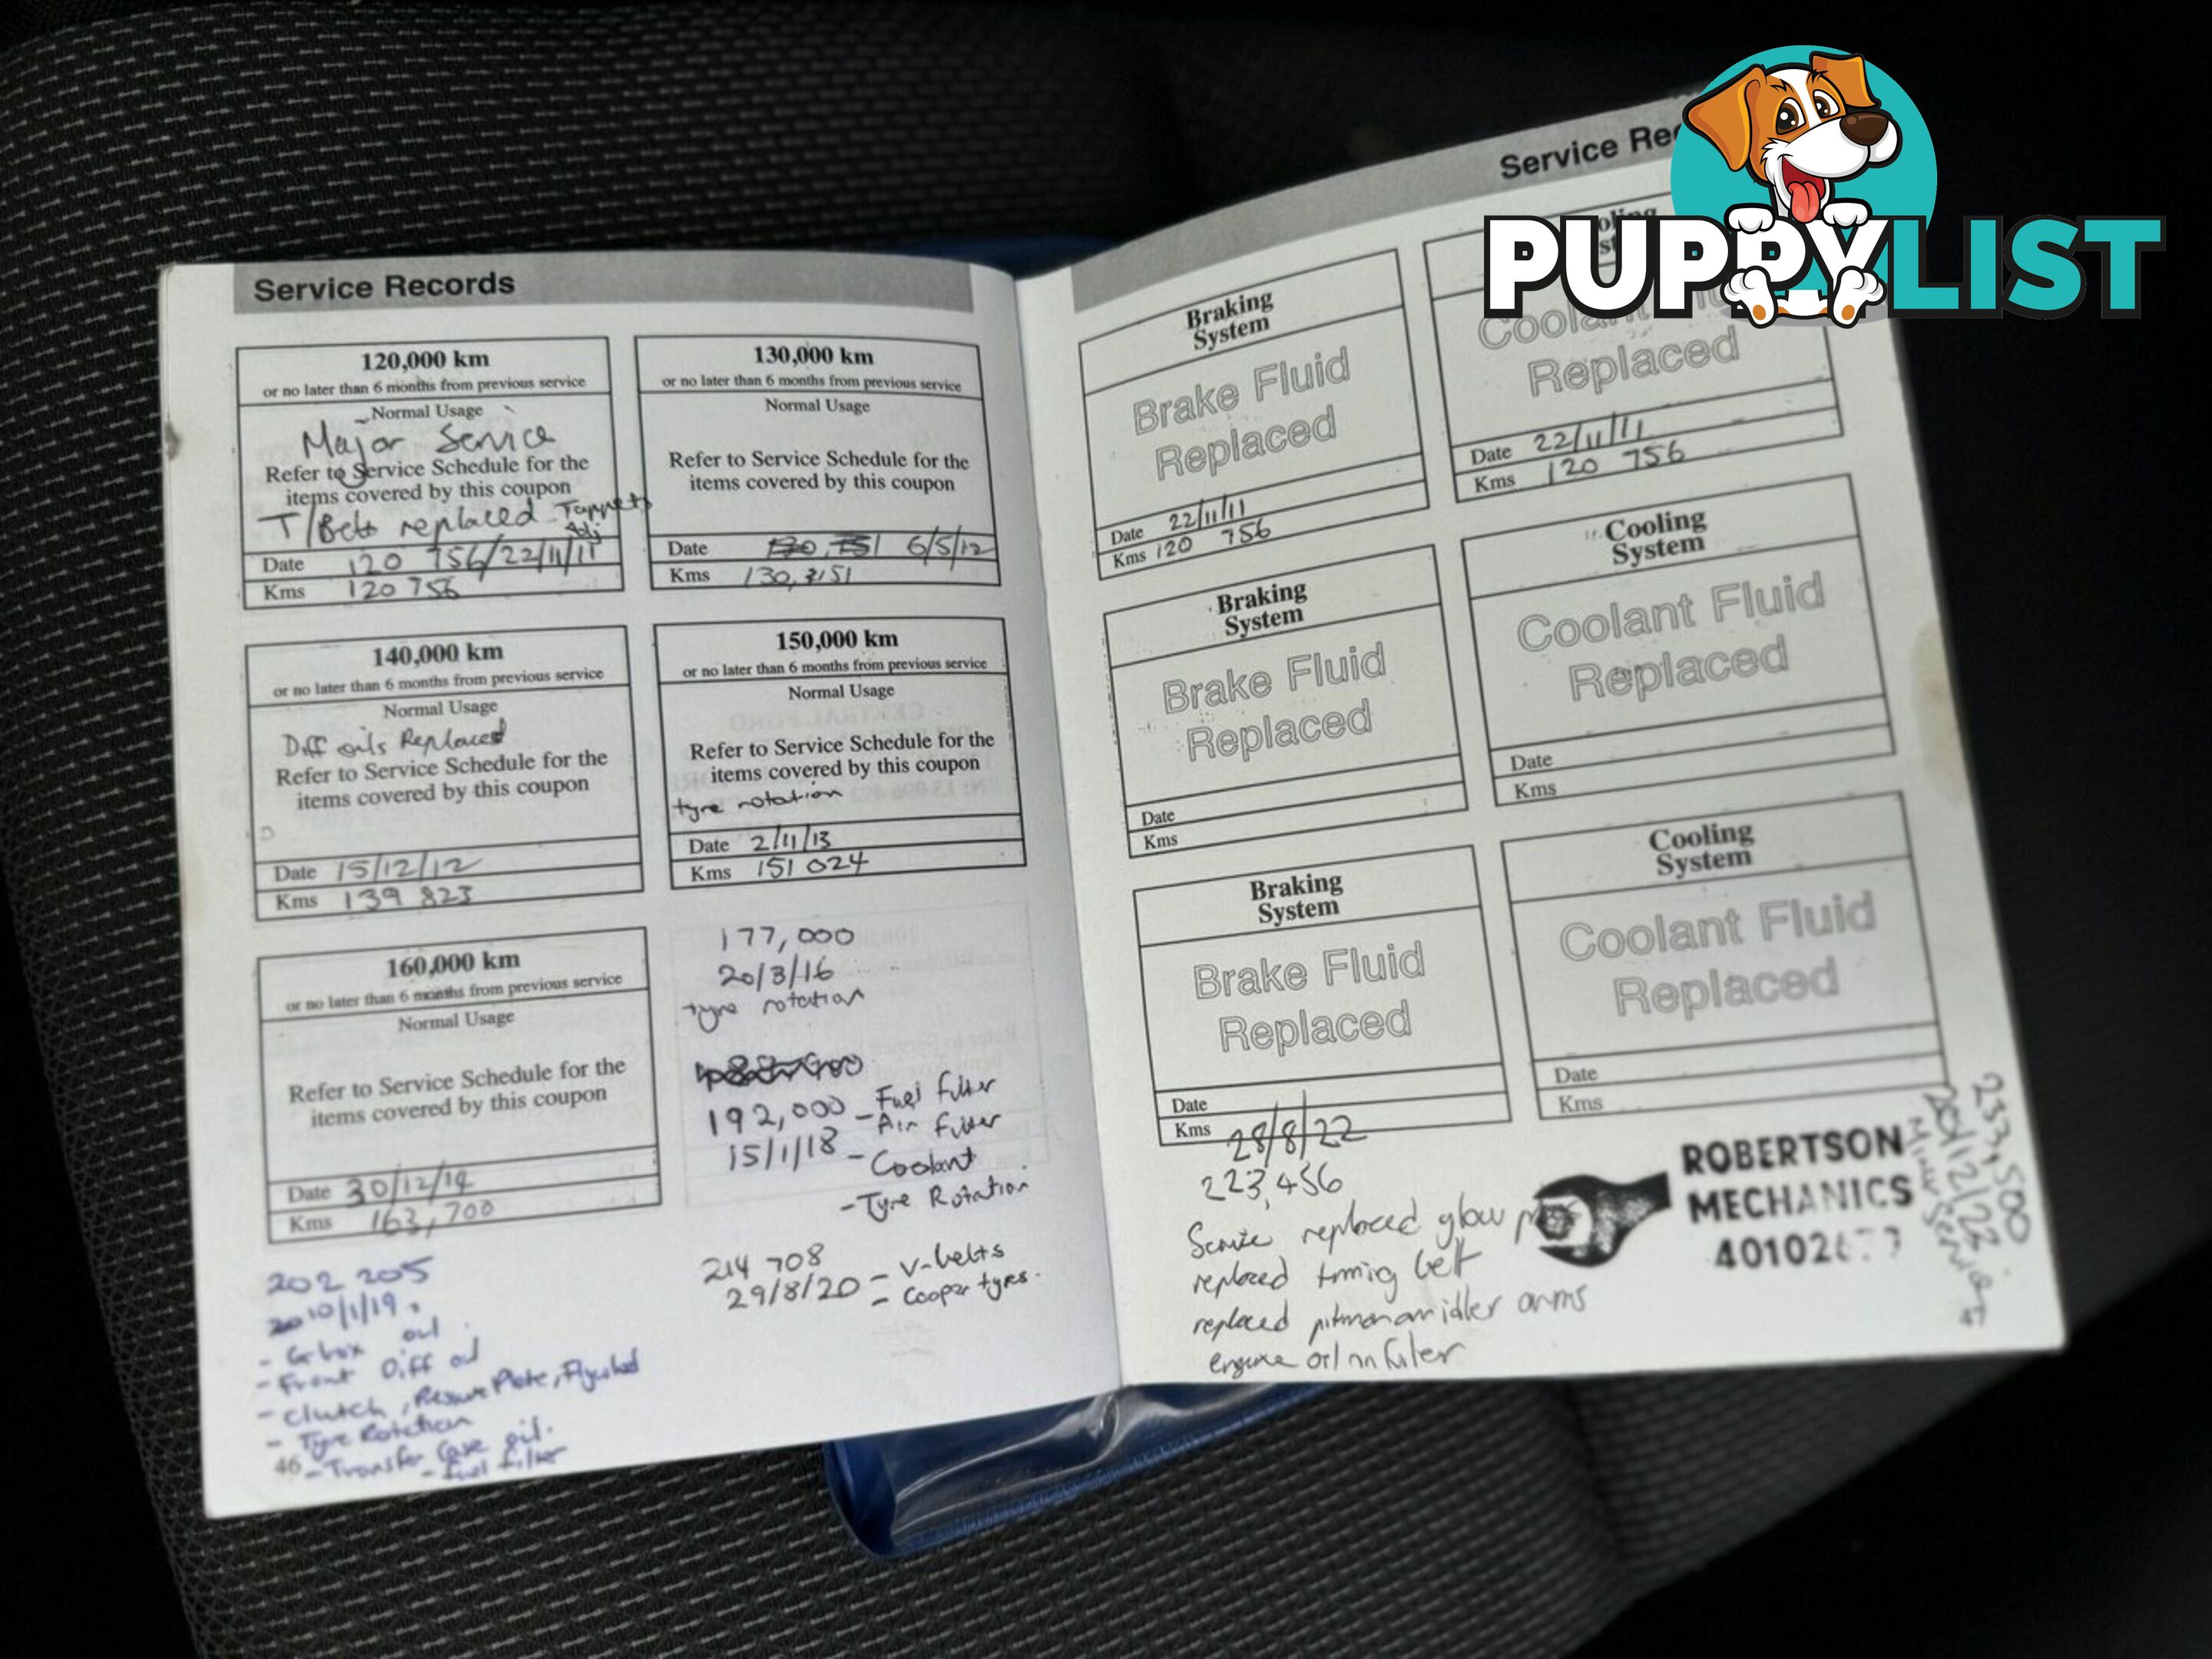 Service Records
120,000 km
or no later than 6 months from previous service
Normal Usage
Major Service
Refer to Service Schedule for the
items covered by this coupon
T/Belt replaced Tappets
Adj
Date 120 756/22/11/11
Kms 120 756
130,000 km
or no later than 6 months from previous service
Normal Usage
Refer to Service Schedule for the
items covered by this coupon
Date 6/5/12
Kms
140,000 km
or no later than 6 months from previous service
Normal Usage
Diff oils Replaced
Refer to Service Schedule for the
items covered by this coupon
Date 15/12/12
Kms 139 823
150,000 km
or no later than 6 months from previous service
Normal Usage
Refer to Service Schedule for the
items covered by this coupon
tyre rotation
Date 2/11/13
Kms 151 024
160,000 km
or no later than 6 months from previous service
Normal Usage
Refer to Service Schedule for the
items covered by this coupon
Date 30/12/14
Kms 163,700
177,000
20/3/16
tyre rotation
192,000 - Fuel filter
- Air filter
15/1/18 - Coolant
- Tyre Rotation
202 205
10/1/19
- Gbox oil
- Front Diff oil
- Clutch, Pressure Plate, Flywheel
- Tyre Rotation
- Transfer Case oil.
- Fuel filter
46
214 708
29/8/20 - V-belts
- Cooper tyres.
Service
Braking
System
Brake Fluid
Replaced
Date 22/11/11
Kms 120 756
Replaced
Date 22/11/11
Kms 120 756
Braking
System
Brake Fluid
Replaced
Date
Kms
Cooling
System
Coolant Fluid
Replaced
Date
Kms
Braking
System
Brake Fluid
Replaced
Date
Kms 28/8/22
223,456
Service replaced glow
replaced timing belt
replaced pitman arm idler arms
engine oil nn filter
Cooling
System
Coolant Fluid
Replaced
Date
Kms
ROBERTSON
MECHANICS
233,500
Minor Service
47
PUPPYLIST